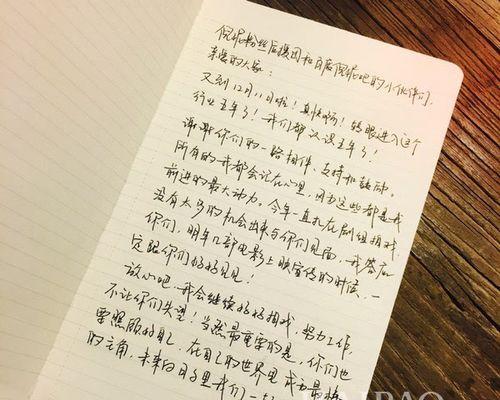 倪妮粉丝后援团和百度倪妮吧的小伙伴们,
亲爱的大家:
又到12月11日啦!真快啊!转眼进入这个
行业五年了!我们都认识五年了!
谢谢你们的一路相伴、支持和鼓励。
所有的我都会记在心里,因为这些都是我
前进的最大动力。今年一直扎在剧组拍戏
没有太多的机会出来与你们见面,我答应
你们,明年几部电影上映宣传的时候,一
定跟你们好好见见!
放心吧,我会继续好好拍戏,努力工作,
不让你们失望!当然最重要的是,你们也
要照顾好自己,在自己的世界里成为最棒
的主角,未来的日子里我们一